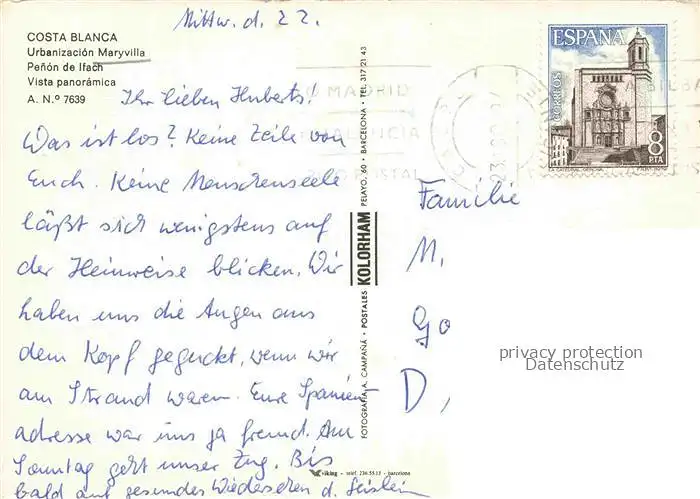 Mittw. d. 22.
COSTA BLANCA
Urbanización Maryvilla
Peñón de Ifach
Vista panorámica
A. N.º 7639
Ihr lieben Huberts!
Was ist los? Keine Zeile von
Euch. Keine Menschenseele
läßt sich wenigstens auf
der Heimweise blicken. Wir
haben uns die Augen aus
dem Kopf geguckt, wenn wir
am Strand waren. Eure Spanien-
adresse war uns ja fremd. Am
Sonntag geht unser Zug. Bis
bald auf gesundes Wiedersehen d.
FOTOGRAFIA A. CAMPAÑA • POSTALES KOLORHAM PELAYO, 60 • BARCELONA • TEL. 317 21 43
viking - teléf. 236.55.13 - barcelona
ESPAÑA
CORREOS
8
PTA
MADRID
VALENCIA
POSTAL
Familie
M.
Go
D,
privacy protection
Datenschutz